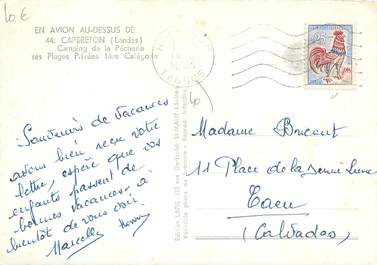 10 €
EN AVION AU-DESSUS DE
44. CAPBRETON (Landes)
Camping de la Pêcherie
ses Plages Privées 1ère Catégorie
LANDES
Souvenirs de vacances
avons bien reçu votre
lettre, espère que vos
enfants passent de
bonnes vacances - à
bientôt de vous voir.
Marcelle Henri
Edition LAPIE
Madame
11 Place de la
Caen
(Calvados)